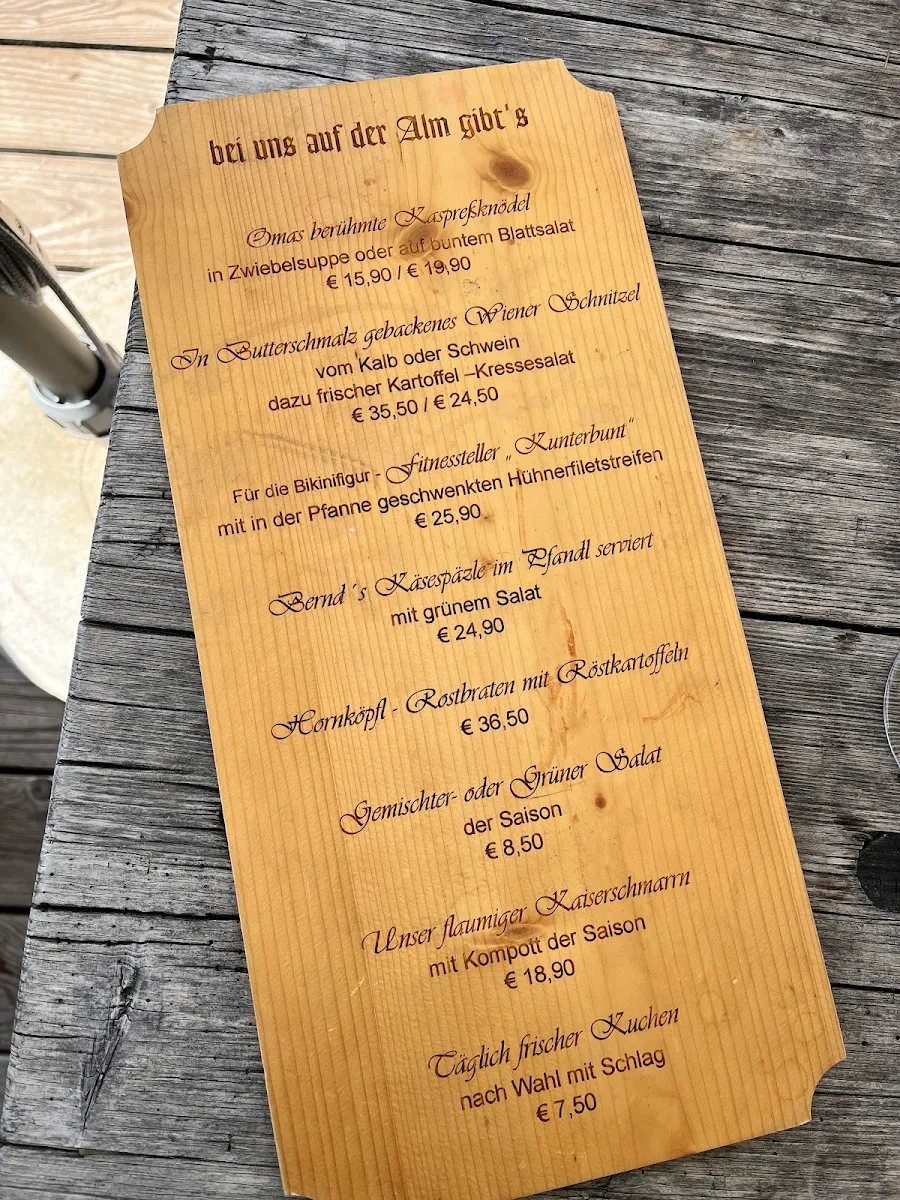 bei uns auf der Alm gibt's
Omas berühmte Kaspreßknödel
in Zwiebelsuppe oder auf buntem Blattsalat
€ 15,90 / € 19,90
In Butterschmalz gebackenes Wiener Schnitzel
vom Kalb oder Schwein
dazu frischer Kartoffel –Kressesalat
€ 35,50 / € 24,50
Für die Bikinifigur - Fitnessteller „Kunterbunt“
mit in der Pfanne geschwenkten Hühnerfiletstreifen
€ 25,90
Bernd´s Käsespäzle im Pfandl serviert
mit grünem Salat
€ 24,90
Hornköpfl - Rostbraten mit Röstkartoffeln
€ 36,50
Gemischter- oder Grüner Salat
der Saison
€ 8,50
Unser flaumiger Kaiserschmarrn
mit Kompott der Saison
€ 18,90
Täglich frischer Kuchen
nach Wahl mit Schlag
€ 7,50